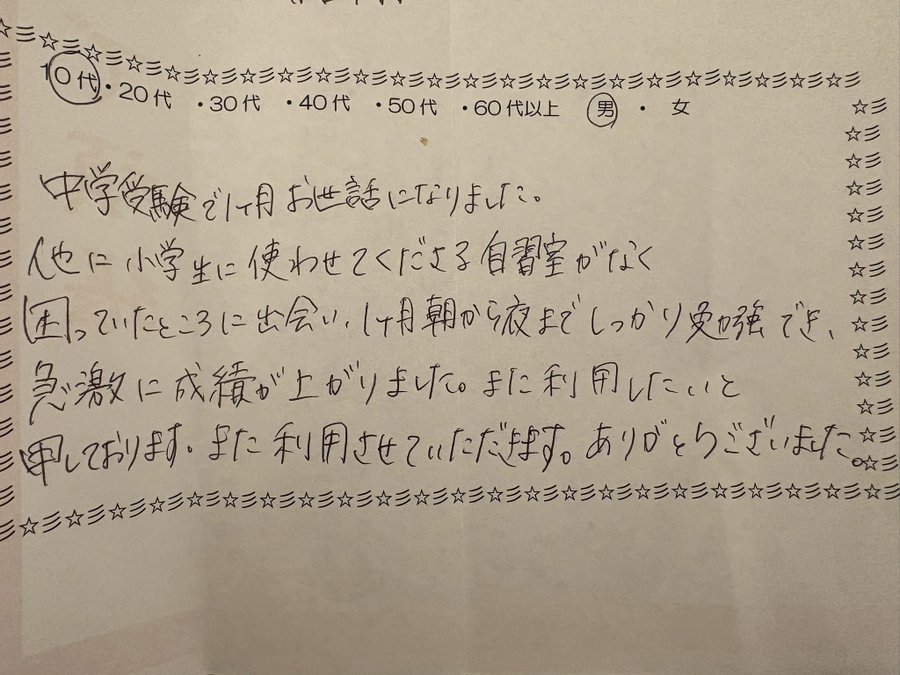 10代・20代・30代・40代・50代・60代以上 男・女
中学受験で1ヶ月お世話になりました。
他に小学生に使わせてくださる自習室がなく
困っていたところに出会い、1ヶ月朝から夜までしっかり勉強でき、
急激に成績が上がりました。また利用したいと
申しております。また利用させていただきます。ありがとうございました。